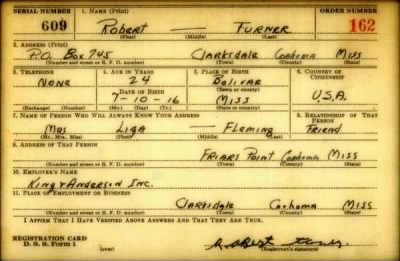 SERIAL NUMBER 1. NAME (Print) ORDER NUMBER
609 Robert — Turner 162
(First) (Middle) (Last)
2. ADDRESS (Print)
P.O. Box 745 Clarksdale Coahoma Miss
(Number and street or R. F. D. number) (Town) (County) (State)
3. TELEPHONE 4. AGE IN YEARS 5. PLACE OF BIRTH 6. COUNTRY OF CITIZENSHIP
None 24 Bolivar
DATE OF BIRTH (Town or county)
7-10-16 Miss U.S.A.
(Exchange) (Number) (Mo.) (Day) (Yr.) (State or country)
7. NAME OF PERSON WHO WILL ALWAYS KNOW YOUR ADDRESS 8. RELATIONSHIP OF THAT PERSON
Mrs Liza — Fleming Friend
(Mr., Mrs., Miss) (First) (Middle) (Last)
9. ADDRESS OF THAT PERSON
Friars Point Coahoma Miss
(Number and street or R. F. D. number) (Town) (County) (State)
10. EMPLOYER'S NAME
King & Anderson Inc.
11. PLACE OF EMPLOYMENT OR BUSINESS
Clarksdale Coahoma Miss.
(Number and street or R. F. D. number) (Town) (County) (State)
I AFFIRM THAT I HAVE VERIFIED ABOVE ANSWERS AND THAT THEY ARE TRUE.
REGISTRATION CARD
D. S. S. Form 1 (over) Robert
(Registrant's signature)